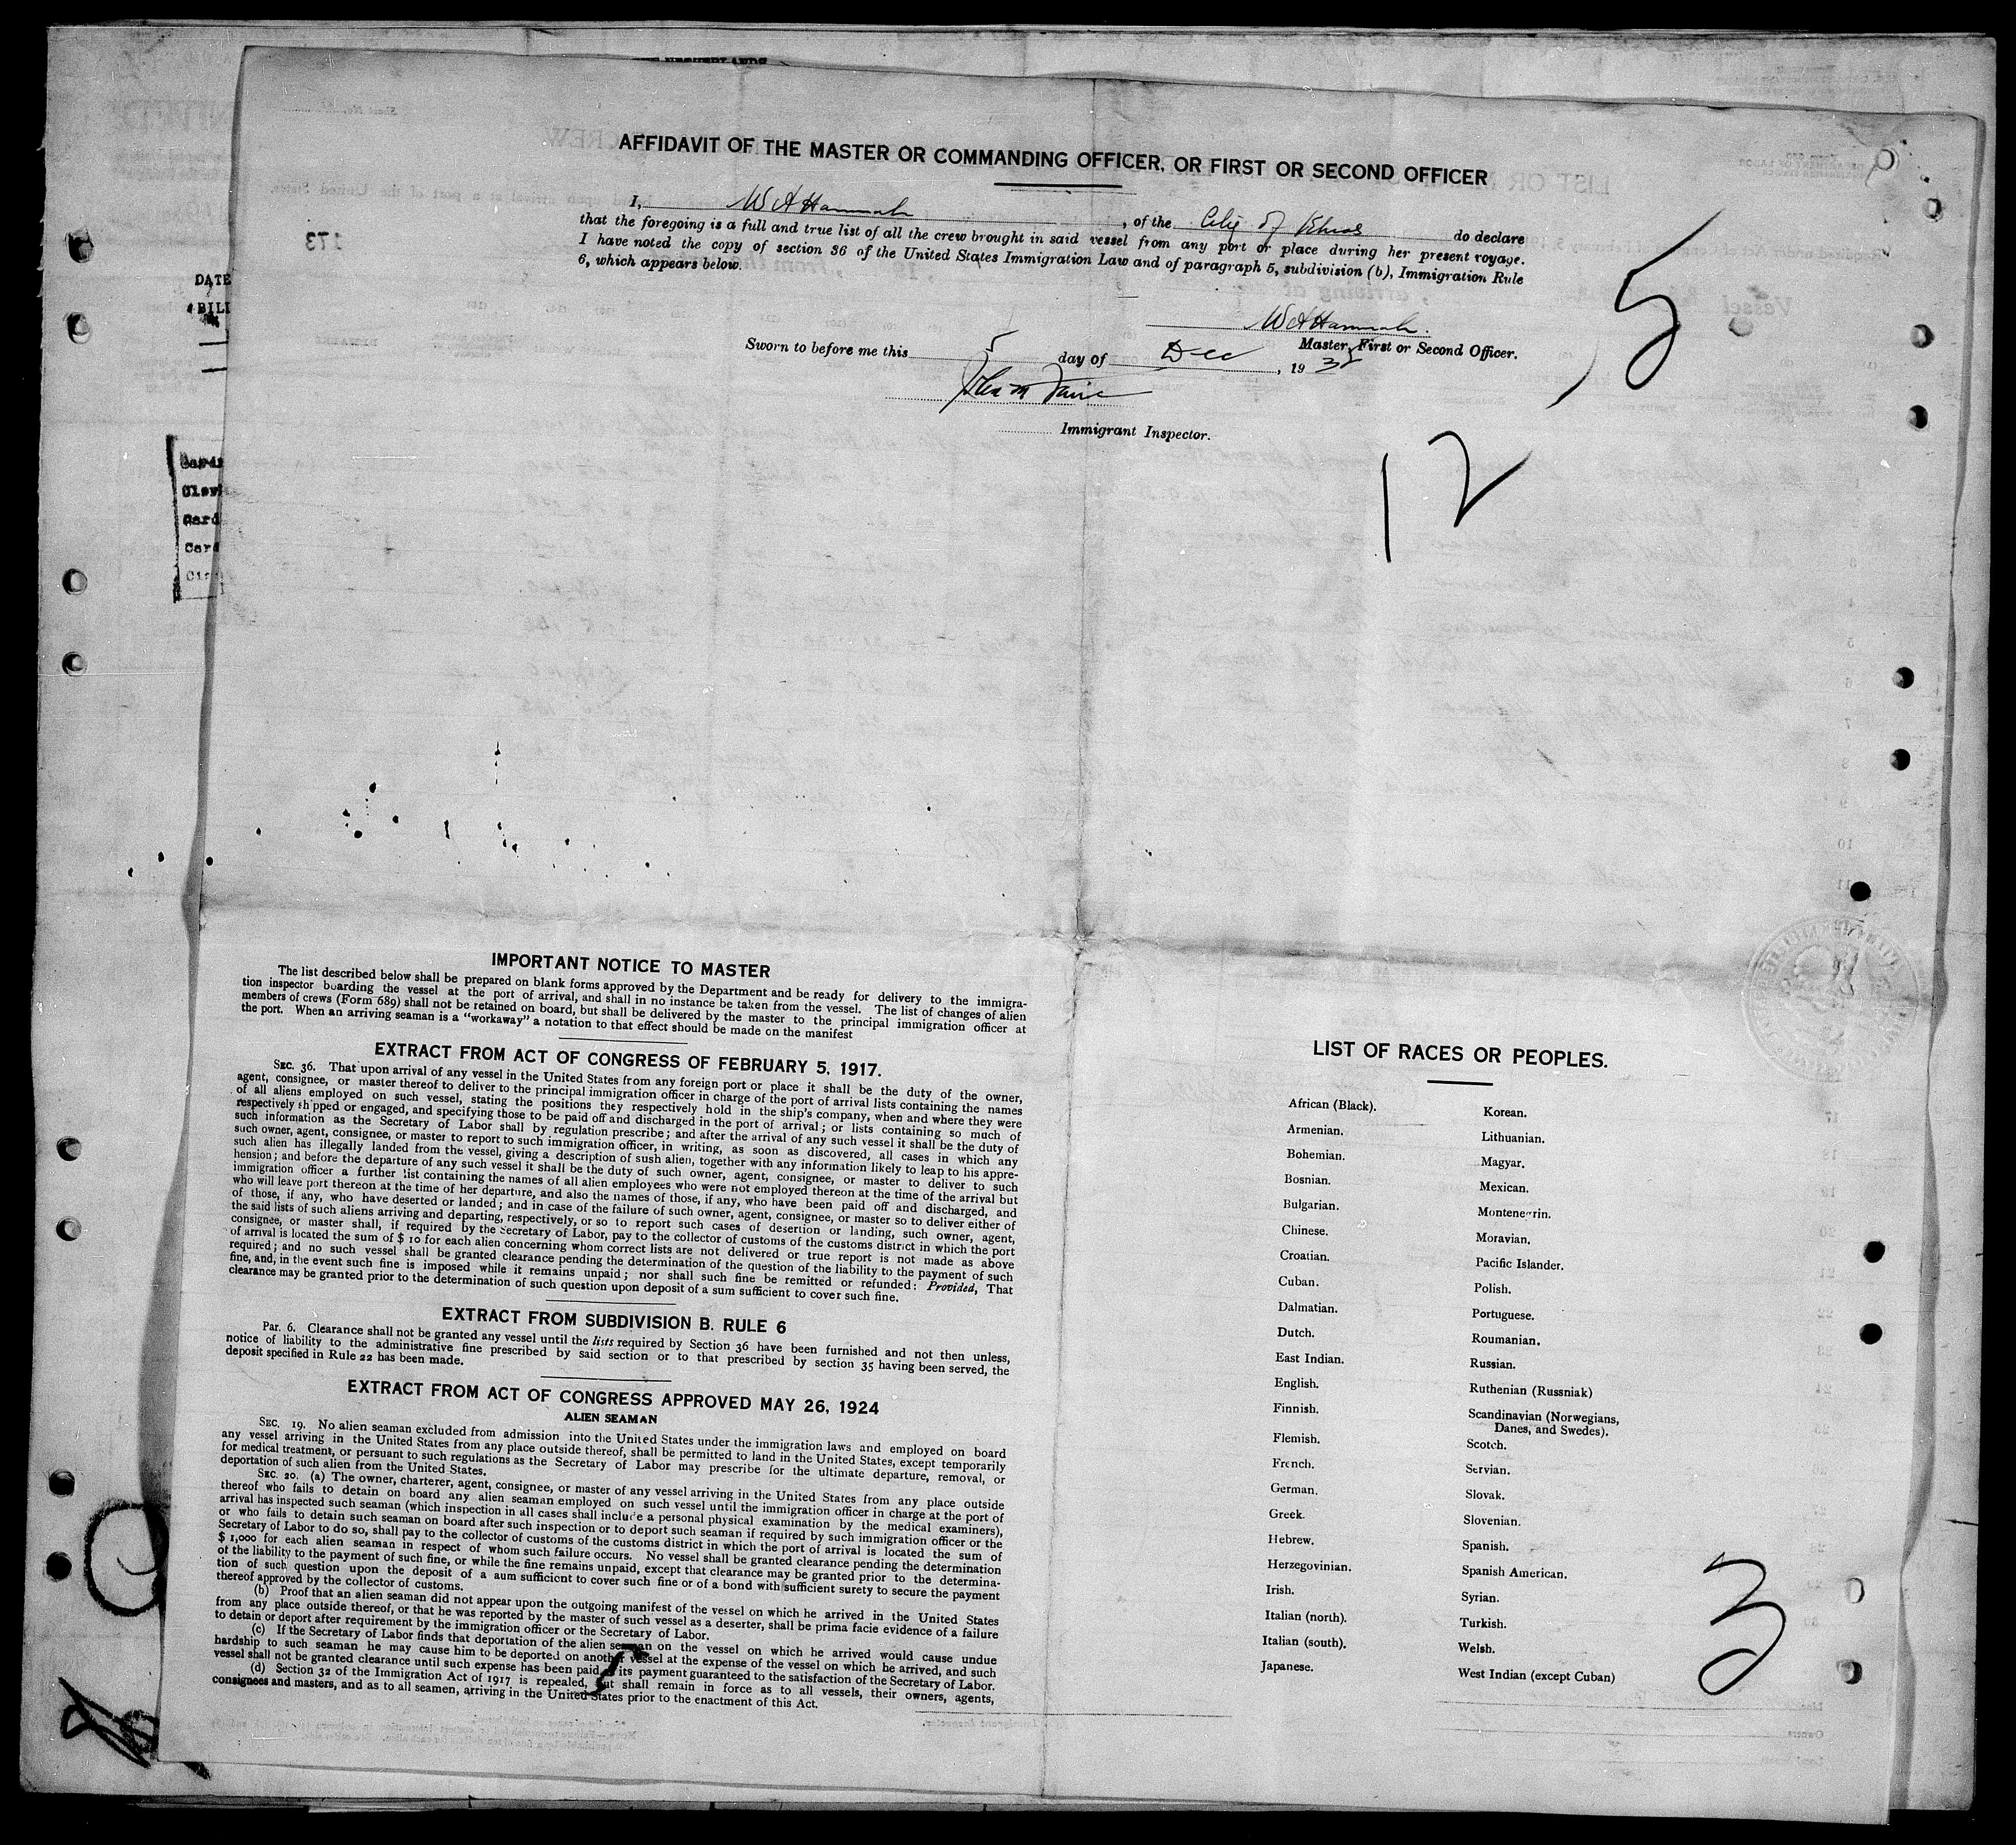 AFFIDAVIT OF THE MASTER OR COMMANDING OFFICER, OR FIRST OR SECOND OFFICER
I, W A Hannah, of the City of do declare
that the foregoing is a full and true list of all the crew brought in said vessel from any port or place during her present voyage.
I have noted the copy of section 36 of the United States Immigration Law and of paragraph 5, subdivision (b), Immigration Rule
6, which appears below.
W A Hannah.
Master, First or Second Officer.
Sworn to before me this 5 day of Dec, 19
Immigrant Inspector.
5
12
173
DATE
BILL
Card
IMPORTANT NOTICE TO MASTER
The list described below shall be prepared on blank forms approved by the Department and be ready for delivery to the immigra-
tion inspector boarding the vessel at the port of arrival, and shall in no instance be taken from the vessel. The list of changes of alien
members of crews (Form 689) shall not be retained on board, but shall be delivered by the master to the principal immigration officer at
the port. When an arriving seaman is a "workaway" a notation to that effect should be made on the manifest
EXTRACT FROM ACT OF CONGRESS OF FEBRUARY 5, 1917.
SEC. 36. That upon arrival of any vessel in the United States from any foreign port or place it shall be the duty of the owner,
agent, consignee, or master thereof to deliver to the principal immigration officer in charge of the port of arrival lists containing the names
of all aliens employed on such vessel, stating the positions they respectively hold in the ship's company, when and where they were
respectively shipped or engaged, and specifying those to be paid off and discharged in the port of arrival; or lists containing so much of
such information as the Secretary of Labor shall by regulation prescribe; and after the arrival of any such vessel it shall be the duty of
such owner, agent, consignee, or master to report to such immigration officer, in writing, as soon as discovered, all cases in which any
such alien has illegally landed from the vessel, giving a description of sush alien, together with any information likely to leap to his appre-
hension; and before the departure of any such vessel it shall be the duty of such owner, agent, consignee, or master to deliver to such
immigration officer a further list containing the names of all alien employees who were not employed thereon at the time of the arrival but
who will leave port thereon at the time of her departure, and also the names of those, if any, who have been paid off and discharged, and
of those, if any, who have deserted or landed; and in case of the failure of such owner, agent, consignee, or master so to deliver either of
the said lists of such aliens arriving and departing, respectively, or so to report such cases of desertion or landing, such owner, agent,
consignee, or master shall, if required by the Secretary of Labor, pay to the collector of customs of the customs district in which the port
of arrival is located the sum of $ 10 for each alien concerning whom correct lists are not delivered or true report is not made as above
required; and no such vessel shall be granted clearance pending the determination of the question of the liability to the payment of such
fine, and, in the event such fine is imposed while it remains unpaid; nor shall such fine be remitted or refunded: Provided, That
clearance may be granted prior to the determination of such question upon deposit of a sum sufficient to cover such fine.
EXTRACT FROM SUBDIVISION B. RULE 6
Par. 6. Clearance shall not be granted any vessel until the lists required by Section 36 have been furnished and not then unless,
notice of liability to the administrative fine prescribed by said section or to that prescribed by section 35 having been served, the
deposit specified in Rule 22 has been made.
EXTRACT FROM ACT OF CONGRESS APPROVED MAY 26, 1924
ALIEN SEAMAN
SEC. 19. No alien seaman excluded from admission into the United States under the immigration laws and employed on board
any vessel arriving in the United States from any place outside thereof, shall be permitted to land in the United States, except temporarily
for medical treatment, or persuant to such regulations as the Secretary of Labor may prescribe for the ultimate departure, removal, or
deportation of such alien from the United States.
SEC. 20. (a) The owner, charterer, agent, consignee, or master of any vessel arriving in the United States from any place outside
thereof who fails to detain on board any alien seaman employed on such vessel until the immigration officer in charge at the port of
arrival has inspected such seaman (which inspection in all cases shall include a personal physical examination by the medical examiners),
or who fails to detain such seaman on board after such inspection or to deport such seaman if required by such immigration officer or the
Secretary of Labor to do so, shall pay to the collector of customs of the customs district in which the port of arrival is located the sum of
$ 1,000 for each alien seaman in respect of whom such failure occurs. No vessel shall be granted clearance pending the determination
of the liability to the payment of such fine, or while the fine remains unpaid, except that clearance may be granted prior to the determina-
tion of such question upon the deposit of a aum sufficient to cover such fine or of a bond with sufficient surety to secure the payment
thereof approved by the collector of customs.
(b) Proof that an alien seaman did not appear upon the outgoing manifest of the vessel on which he arrived in the United States
from any place outside thereof, or that he was reported by the master of such vessel as a deserter, shall be prima facie evidence of a failure
to detain or deport after requirement by the immigration officer or the Secretary of Labor.
(c) If the Secretary of Labor finds that deportation of the alien seaman on the vessel on which he arrived would cause undue
hardship to such seaman he may cause him to be deported on another vessel at the expense of the vessel on which he arrived, and such
vessel shall not be granted clearance until such expense has been paid or its payment guaranteed to the satisfaction of the Secretary of Labor.
(d) Section 32 of the Immigration Act of 1917 is repealed, but shall remain in force as to all vessels, their owners, agents,
consignees and masters, and as to all seamen, arriving in the United States prior to the enactment of this Act.
LIST OF RACES OR PEOPLES.
African (Black).
Armenian.
Bohemian.
Bosnian.
Bulgarian.
Chinese.
Croatian.
Cuban.
Dalmatian.
Dutch.
East Indian.
English.
Finnish.
Flemish.
French.
German.
Greek.
Hebrew.
Herzegovinian.
Irish.
Italian (north).
Italian (south).
Japanese.
Korean.
Lithuanian.
Magyar.
Mexican.
Montenegrin.
Moravian.
Pacific Islander.
Polish.
Portuguese.
Roumanian.
Russian.
Ruthenian (Russniak)
Scandinavian (Norwegians,
Danes, and Swedes).
Scotch.
Servian.
Slovak.
Slovenian.
Spanish.
Spanish American.
Syrian.
Turkish.
Welsh.
West Indian (except Cuban)
3